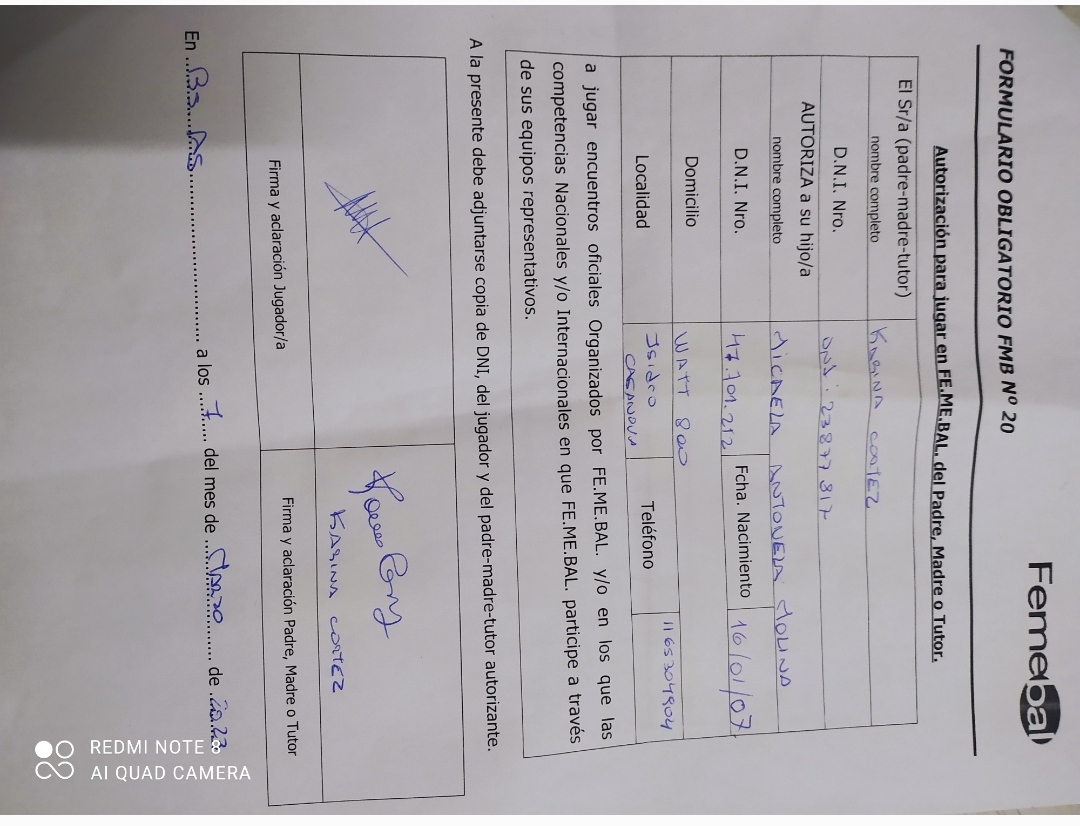 FORMULARIO OBLIGATORIO FMB Nº 20
Femebal
Autorización para jugar en FE.ME.BAL. del Padre, Madre o Tutor.
El Sr/a (padre-madre-tutor)
nombre completo
KARINA CORTEZ
D.N.I. Nro.
DNI: 23877817
AUTORIZA a su hijo/a
nombre completo
MICAELA ANTONELA MOLINA
D.N.I. Nro.
47.701.212
Fcha. Nacimiento
16/01/07
Domicilio
WATT 800
Localidad
Isidro
CASANOVA
Teléfono
1165304904
a jugar encuentros oficiales Organizados por FE.ME.BAL. y/o en los que las
competencias Nacionales y/o Internacionales en que FE.ME.BAL. participe a través
de sus equipos representativos.
A la presente debe adjuntarse copia de DNI, del jugador y del padre-madre-tutor autorizante.
KARINA CORTEZ
Firma y aclaración Jugador/a
Firma y aclaración Padre, Madre o Tutor
En ...Bs. As... a los ...7... del mes de ...Marzo... de ...2023
REDMI NOTE 8
AI QUAD CAMERA